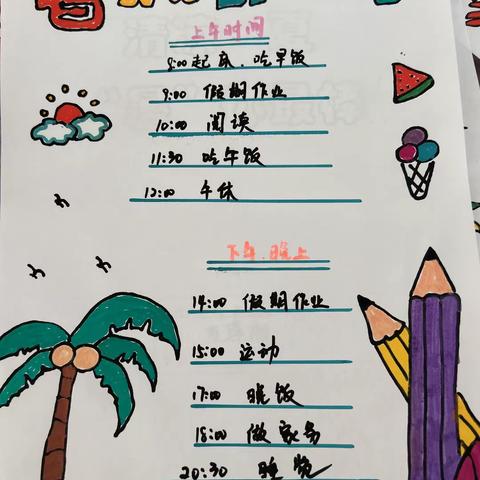 上午时间
8:00 起床、吃早饭
9:00 假期作业
10:00 阅读
11:30 吃午饭
12:00 午休
下午.晚上
14:00 假期作业
15:00 运动
17:00 晚饭
18:00 做家务
20:30 睡觉